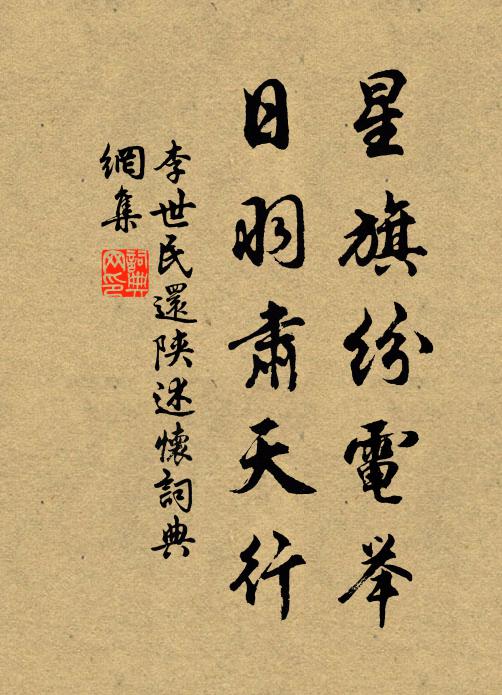 星旗紛電举
日羽肅天行
李世民還陕述懷詞典
網集
詞典网印